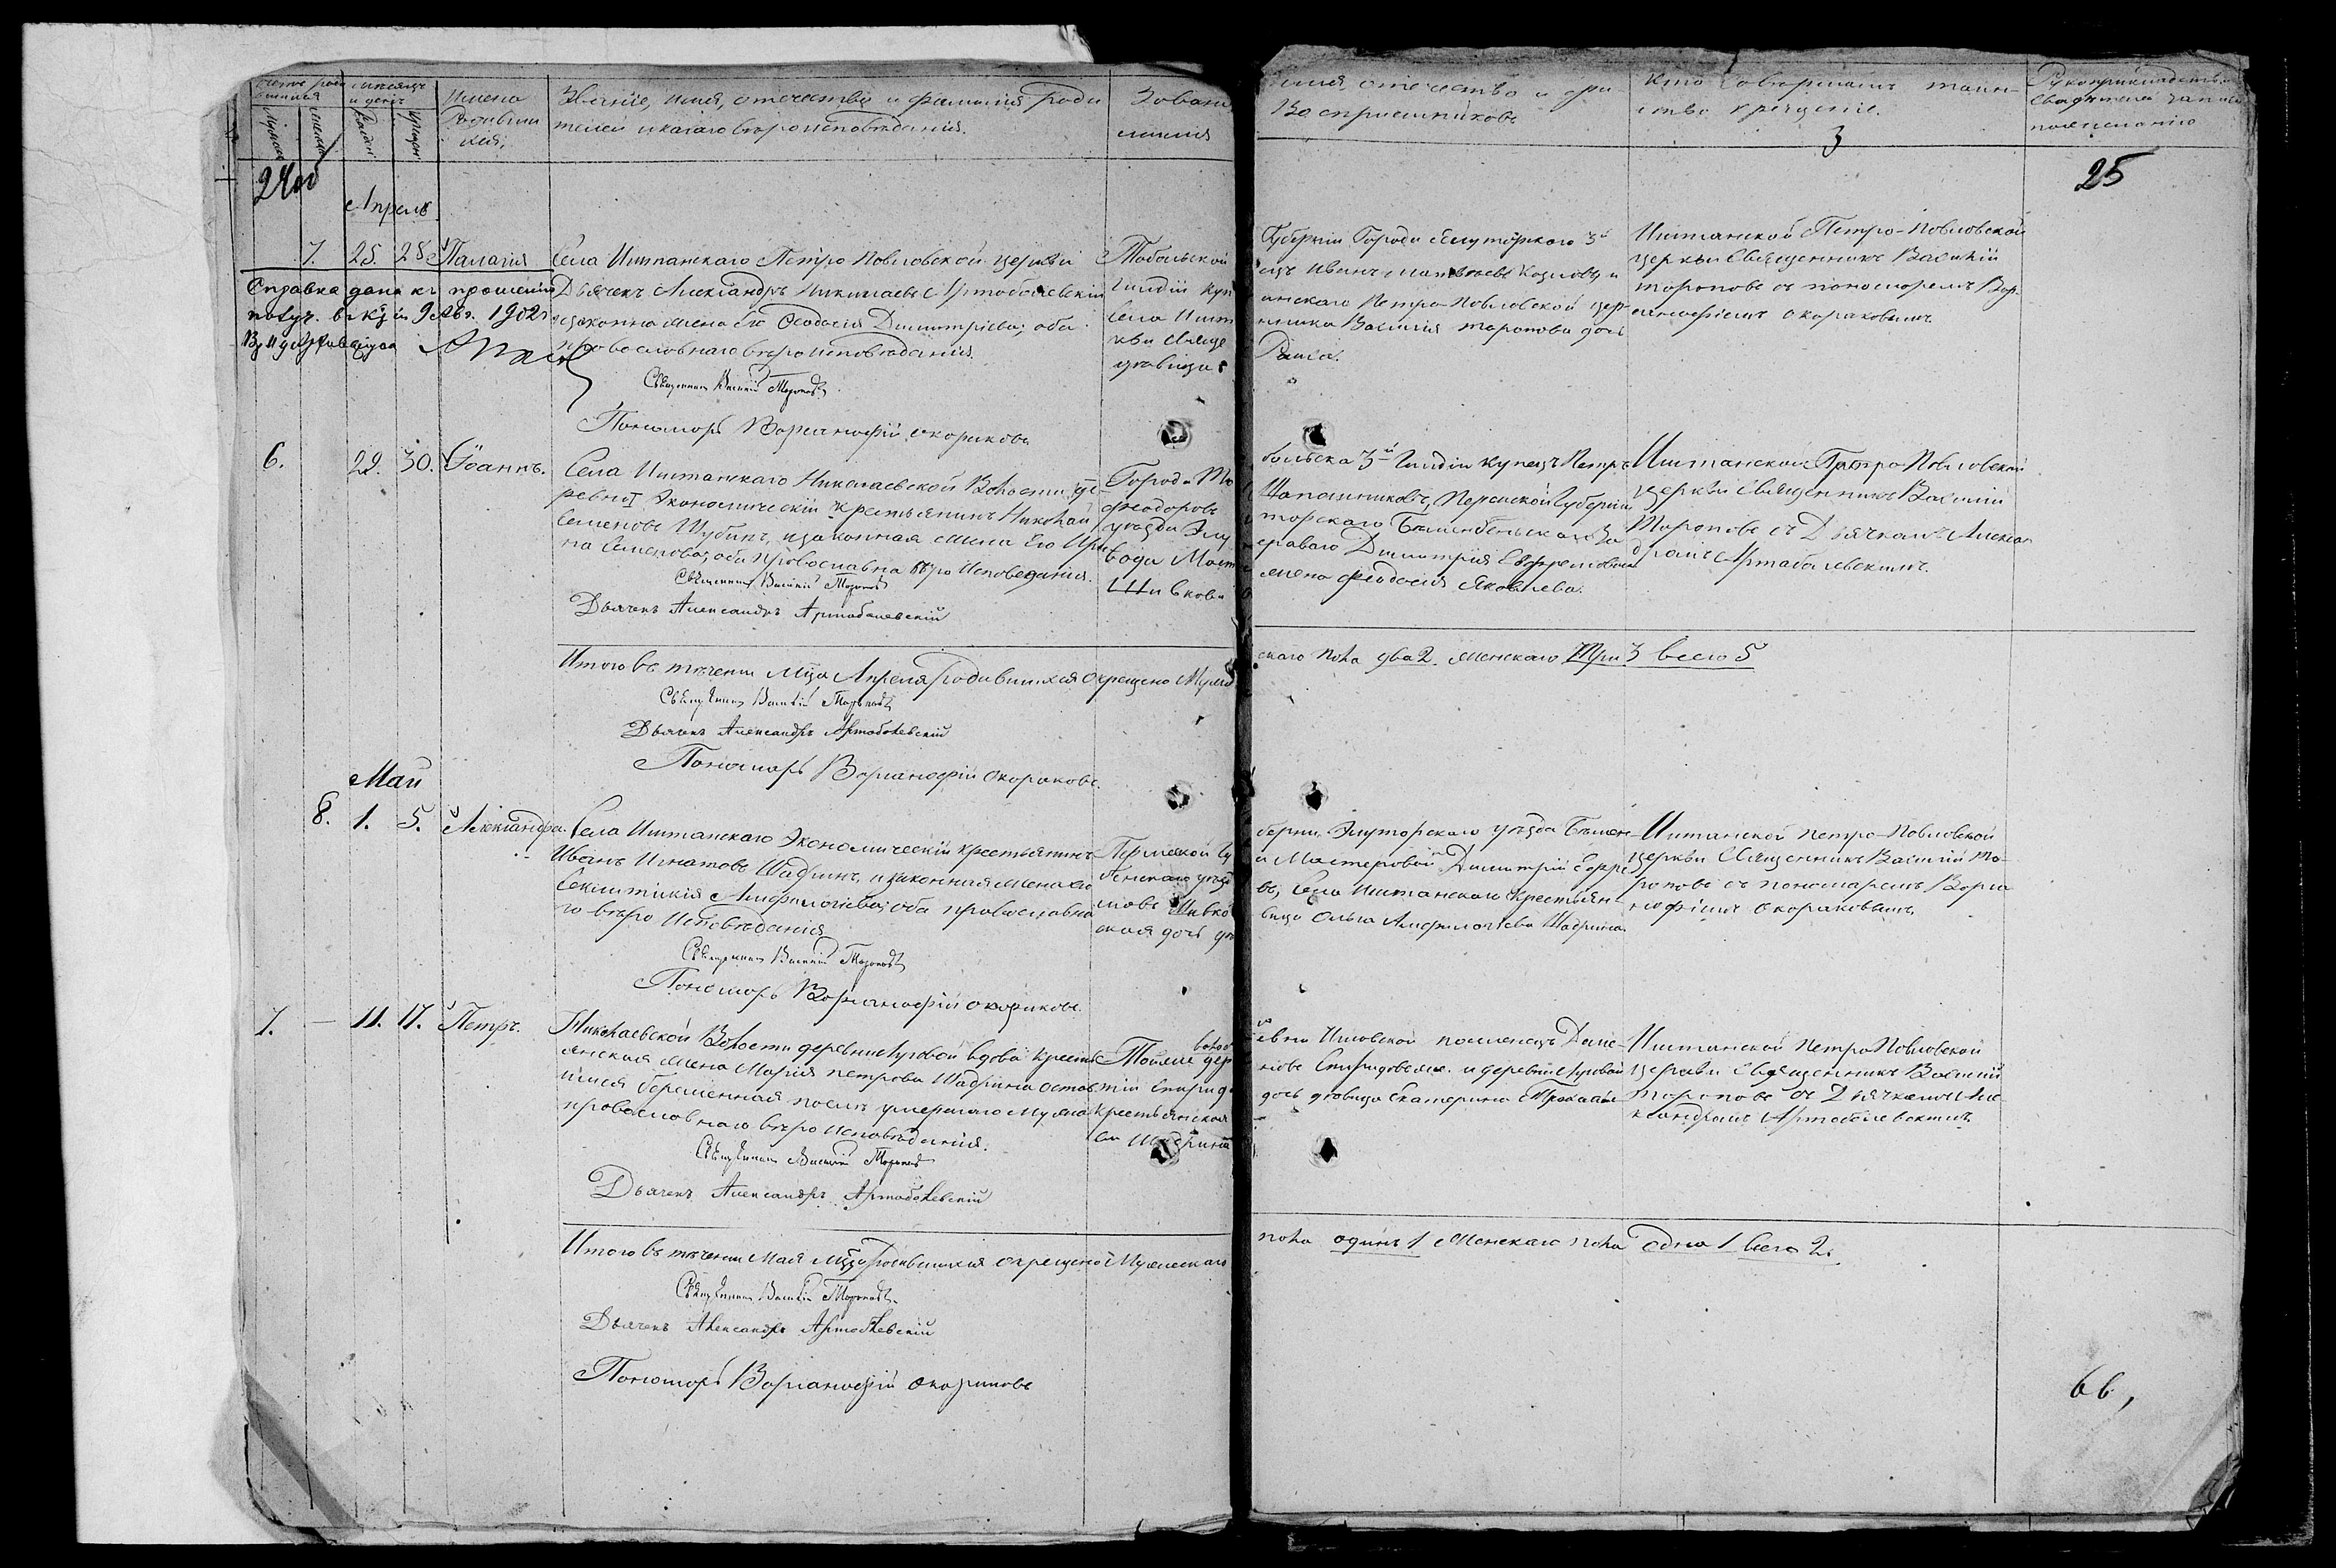 Имена
Родивши
хся,
Званіе, имя, отчество и фамилія роди
телей и какаго вѣроисповѣданія.
Званіе
имя, отчество и фа
Воспріемниковъ
Кто совершалъ таин-
ство крещеніе.
3
Рукоприкладство
свидѣтелей записи
по желанію
24об
25
Апрель
7. 25. 28 Палагія
Села Иштанскаго Петро Повловской церкви
Дьячекъ Александръ Николаевъ Артоболевскій
и законна жена Его Феодосія Димитріева; оба
провославнаго вѣроисповѣданія.
Священникъ Василій Тороповъ
Пономарь Ворсанофій окораковъ
Справка дана къ прошенію
получ. 9 Авг. 1902 г
Тобольской
гилдіи куп
села Ишт
кви свяще
дѣвица
Губерніи Города Ялуторскаго 3й
ецъ Иванъ Матвѣевъ Козловъ, и
анскаго Петро-Повловской цер-
нника Василія торопова дочь
Раиса.
Иштанской Петро-Повловской
церкви Священникъ Василій
тороповъ съ пономоремъ Вор-
санофіемъ окораковымъ
6. 29. 30. Іоаннъ.
Села Иштанскаго Николаевской Волости, де-
ревни Экономическій крестьянинъ Николай
Семеновъ Шубинъ, и законная жена Его Ири
на Семенова, оба провославна вѣро Исповеданія.
Священникъ Василій Тороповъ
Дьячекъ Александръ Артоболевскій
Города То
феодоровъ
уѣзда Элу
вода Маст
Шивкова
больска 3й Гилдіи купецъ Петръ
Шапошниковъ, Пермской Губерніи
торскаго Бымовскаго За
ероваго Димитрія Ефремовва
жена феодосія Яковлева.
Иштанской Петро-Повловской
церкви Священникъ Василій
Тороповъ съ Дьячкомъ Алексан
дромъ Артаболевскимъ.
Итого въ теченіи Мца Апреля родившихся окрещено Мужа
скаго пола два 2. женскаго Три 3 всего 5
Священникъ Василій Тороповъ
Дьячекъ Александръ Артоболевскій
Пономарь Ворсанофій окораковъ.
Май
8. 1. 5. Александра.
Села Иштанскаго Экономическій крестьянинъ
Иванъ Игнатовъ Шадринъ, и законная жена его
Секлитикія Амфилогіева; оба провославна
го вѣро Исповѣданія
Священникъ Василій Тороповъ
Пономарь Ворсанофій окораковъ.
Пермской Гу
мовъ Шивко
ская дочь дѣ
берни, Элуторскаго уѣзда Бымов-
и Мастеровой Димитрій Ефре
въ, села Иштанскаго крестьян-
вица Ольга Амфилогіева Шадрина.
Иштанской Петро-Повловской
церкви Священникъ Василій То-
роповъ съ пономаремъ Ворса
нофіемъ окораковымъ.
7. — 11. 17. Петръ.
Николаевской Волости деревни Луговой вдова крестья
янская жена Марія петрова Шадрина остав
шися беременная послѣ умершаго мужа
провославнаго вѣро исповѣданія.
Священникъ Василій Тороповъ
Дьячекъ Александръ Артоболевскій
Тойже дер
тій спирид
крестьянская
ва Шадрина
евни Иловской поселенецъ Даме-
новъ Спиридовъ. и деревни Луговой
дочь дѣвица Екатерина
Иштанской Петро Повловской
церкви Священникъ Василій
тороповъ съ Дьячкомъ Але
ксандромъ Артоболевскимъ.
Итого въ теченіи Мая Мца родившихся окрещено Мужескаго
пола одинъ 1 Женскаго пола одна 1 всего 2.
Священникъ Василій Тороповъ.
Дьячекъ Александръ Артоболевскій
Пономарь Ворсанофій окораковъ
66,